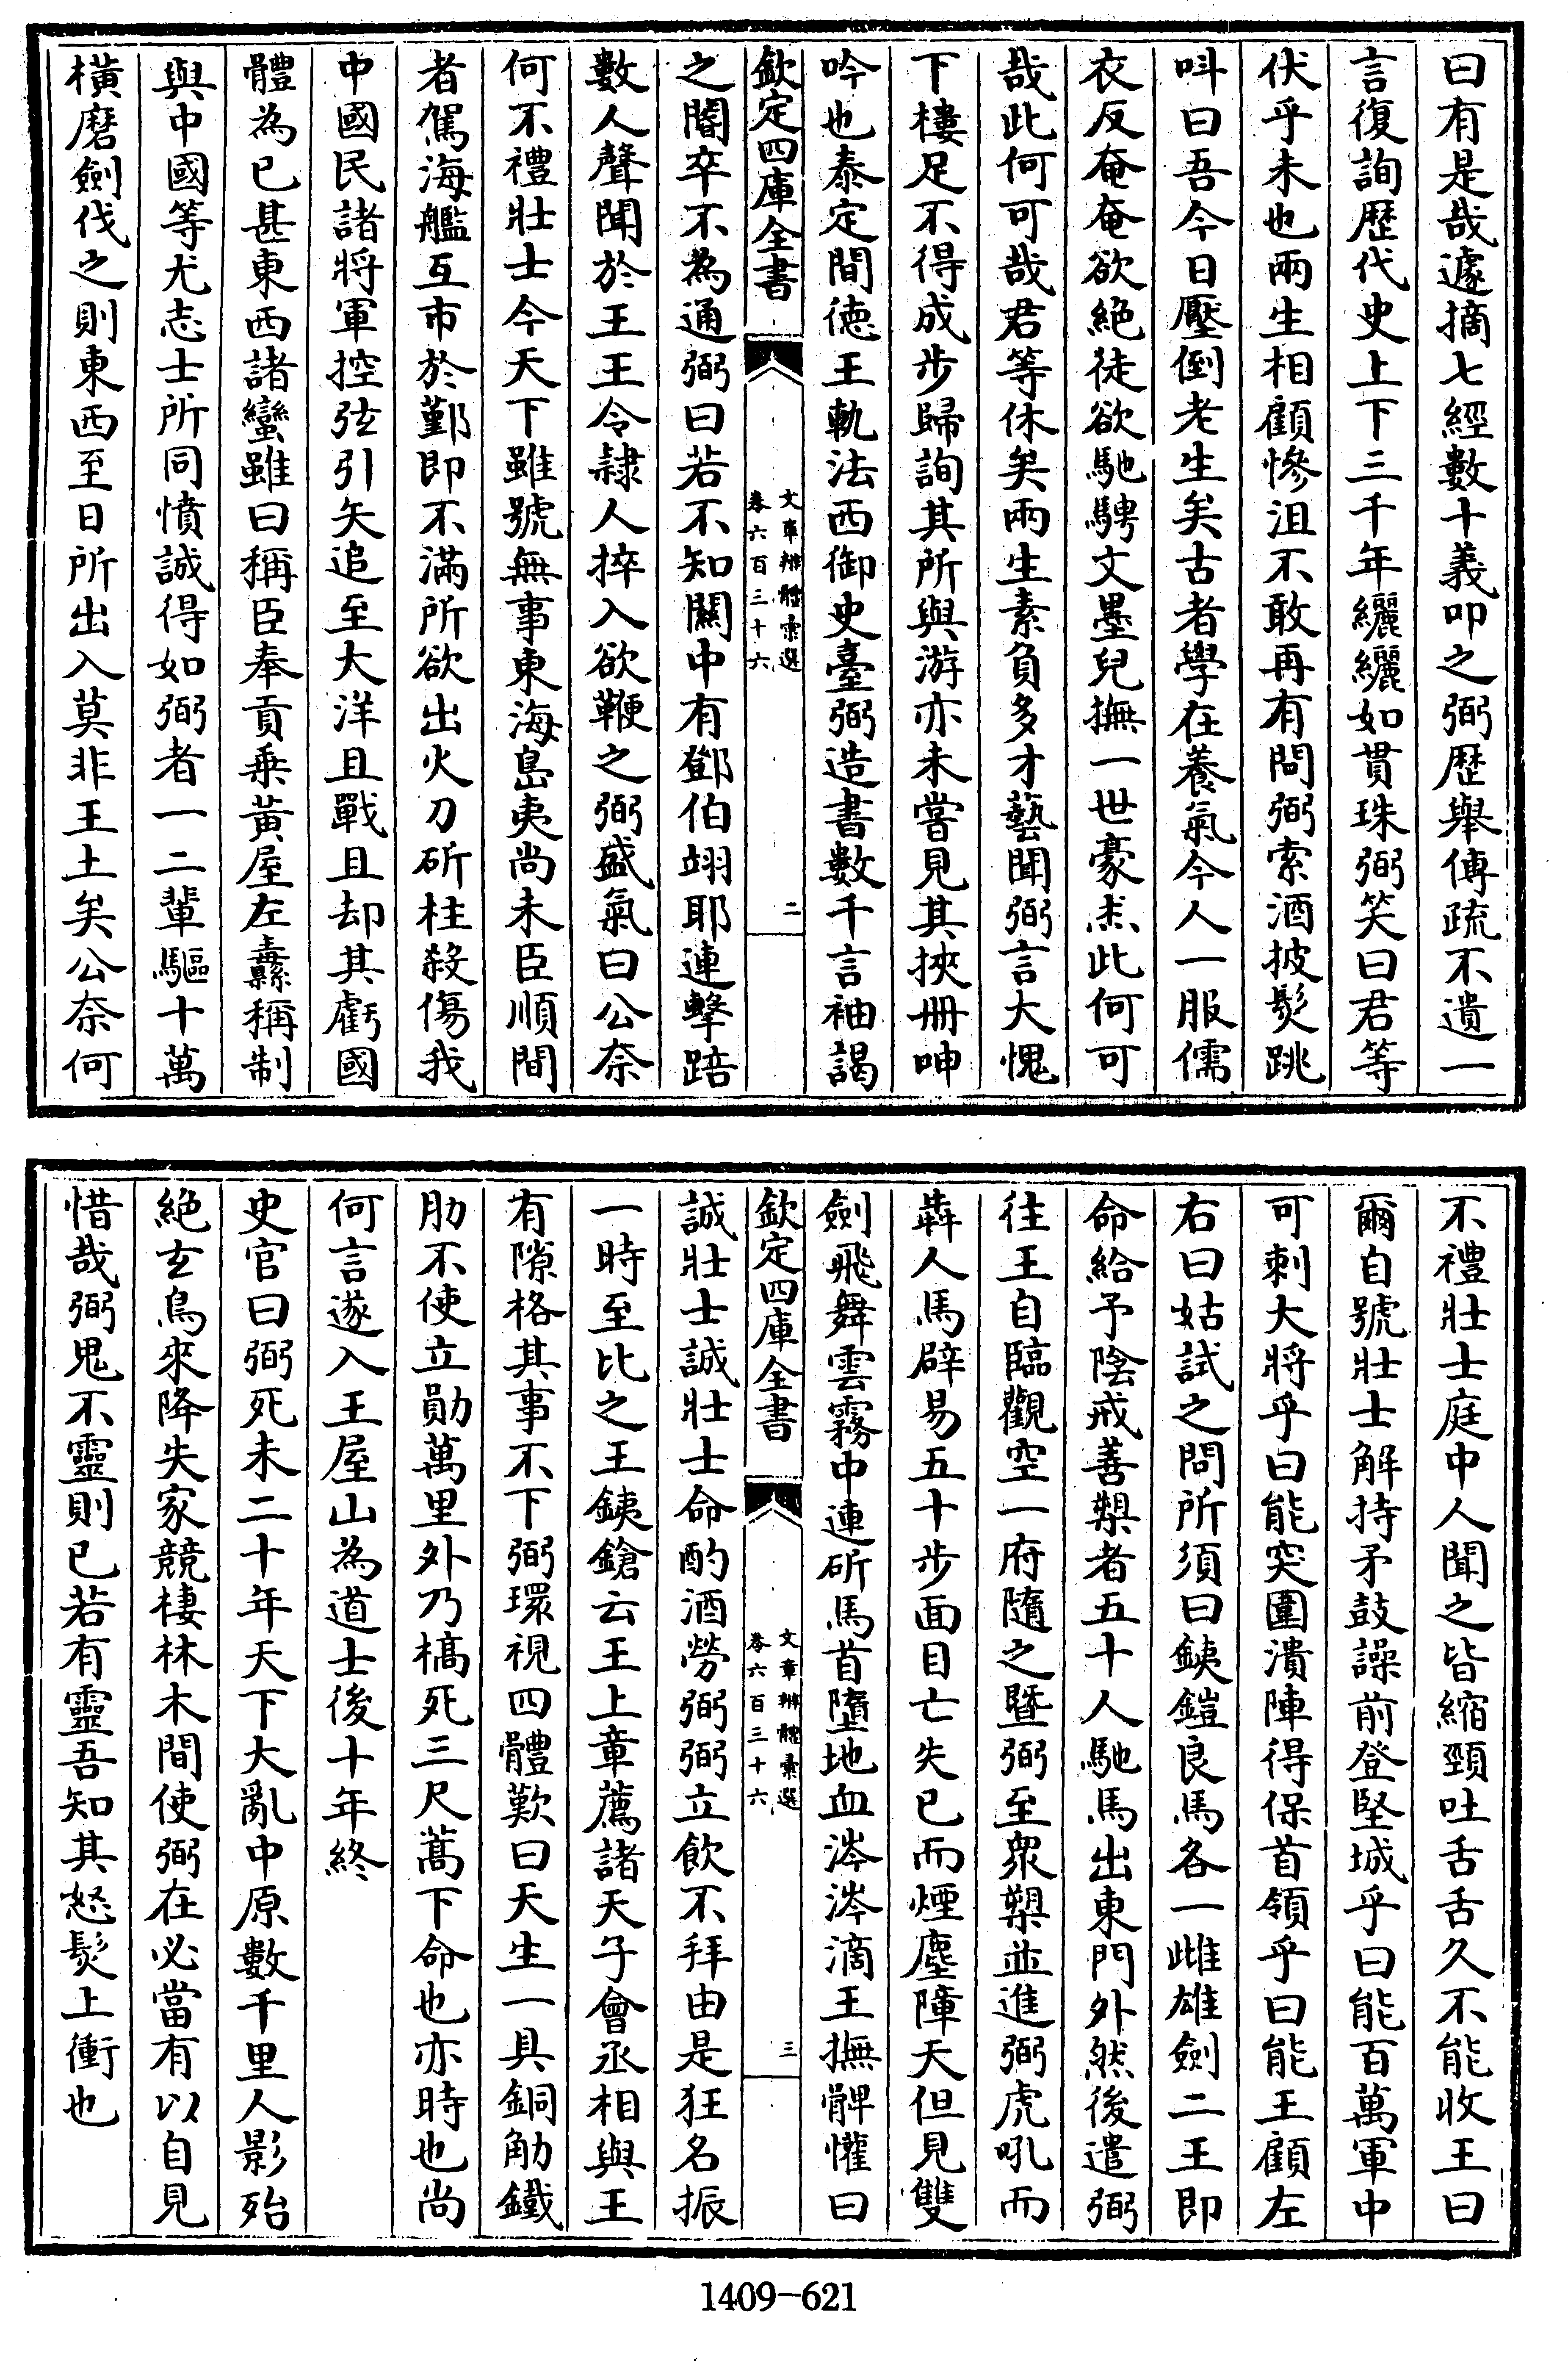 曰有是哉遽摘七經數十義叩之弼歴舉傳疏不遺一
言復詢歴代史上下三千年纚纚如貫珠弼笑曰君等
伏乎未也兩生相顧慘沮不敢再有問弼索酒披髮跳
呌曰吾今日壓倒老生矣古者學在養氣今人一服儒
衣反奄奄欲絶徒欲馳騁文墨兒撫一世豪傑此何可
哉此何可哉君等休矣兩生素負多才藝聞弼言大愧
下樓足不得成步歸詢其所與游亦未嘗見其挾冊呻
吟也泰定間德王軌法西御史臺弼造書數千言袖謁
欽定四庫全書
文章辨體彙選
卷六百三十六
二
之閽卒不為通弼曰若不知關中有鄧伯翊耶連擊踣
數人聲聞於王王令隷人捽入欲鞭之弼盛氣曰公奈
何不禮壯士今天下雖號無事東海島夷尚未臣順間
者駕海艦互市於鄞即不滿所欲出火刀斫柱殺傷我
中國民諸將軍控弦引矢追至大洋且戰且却其虧國
體為已甚東西諸蠻雖曰稱臣奉貢乗黃屋左纛稱制
與中國等尤志士所同憤誠得如弼者一二輩驅十萬
橫磨劍伐之則東西至日所出入莫非王土矣公奈何
不禮壯士庭中人聞之皆縮頸吐舌舌久不能收王曰
爾自號壯士解持矛鼓譟前登堅城乎曰能百萬軍中
可刺大將乎曰能突圍潰陣得保首領乎曰能王顧左
右曰姑試之問所須曰鐵鎧良馬各一雌雄劍二王即
命給予陰戒善槊者五十人馳馬出東門外然後遣弼
往王自臨觀空一府隨之暨弼至衆槊並進弼虎吼而
犇人馬辟易五十步面目亡失已而煙塵障天但見雙
劍飛舞雲霧中連斫馬首墮地血涔涔滴王撫髀懽曰
欽定四庫全書
文章辨體彙選
卷六百三十六
三
誠壯士誠壯士命酌酒勞弼弼立飲不拜由是狂名振
一時至比之王鐵鎗云王上章薦諸天子會丞相與王
有隙格其事不下弼環視四體歎曰天生一具銅觔鐵
肋不使立勛萬里外乃槁死三尺蒿下命也亦時也尚
何言遂入王屋山為道士後十年終
史官曰弼死未二十年天下大亂中原數千里人影殆
絶玄鳥來降失家競棲林木間使弼在必當有以自見
惜哉弼鬼不靈則已若有靈吾知其怒髮上衝也
1409-621